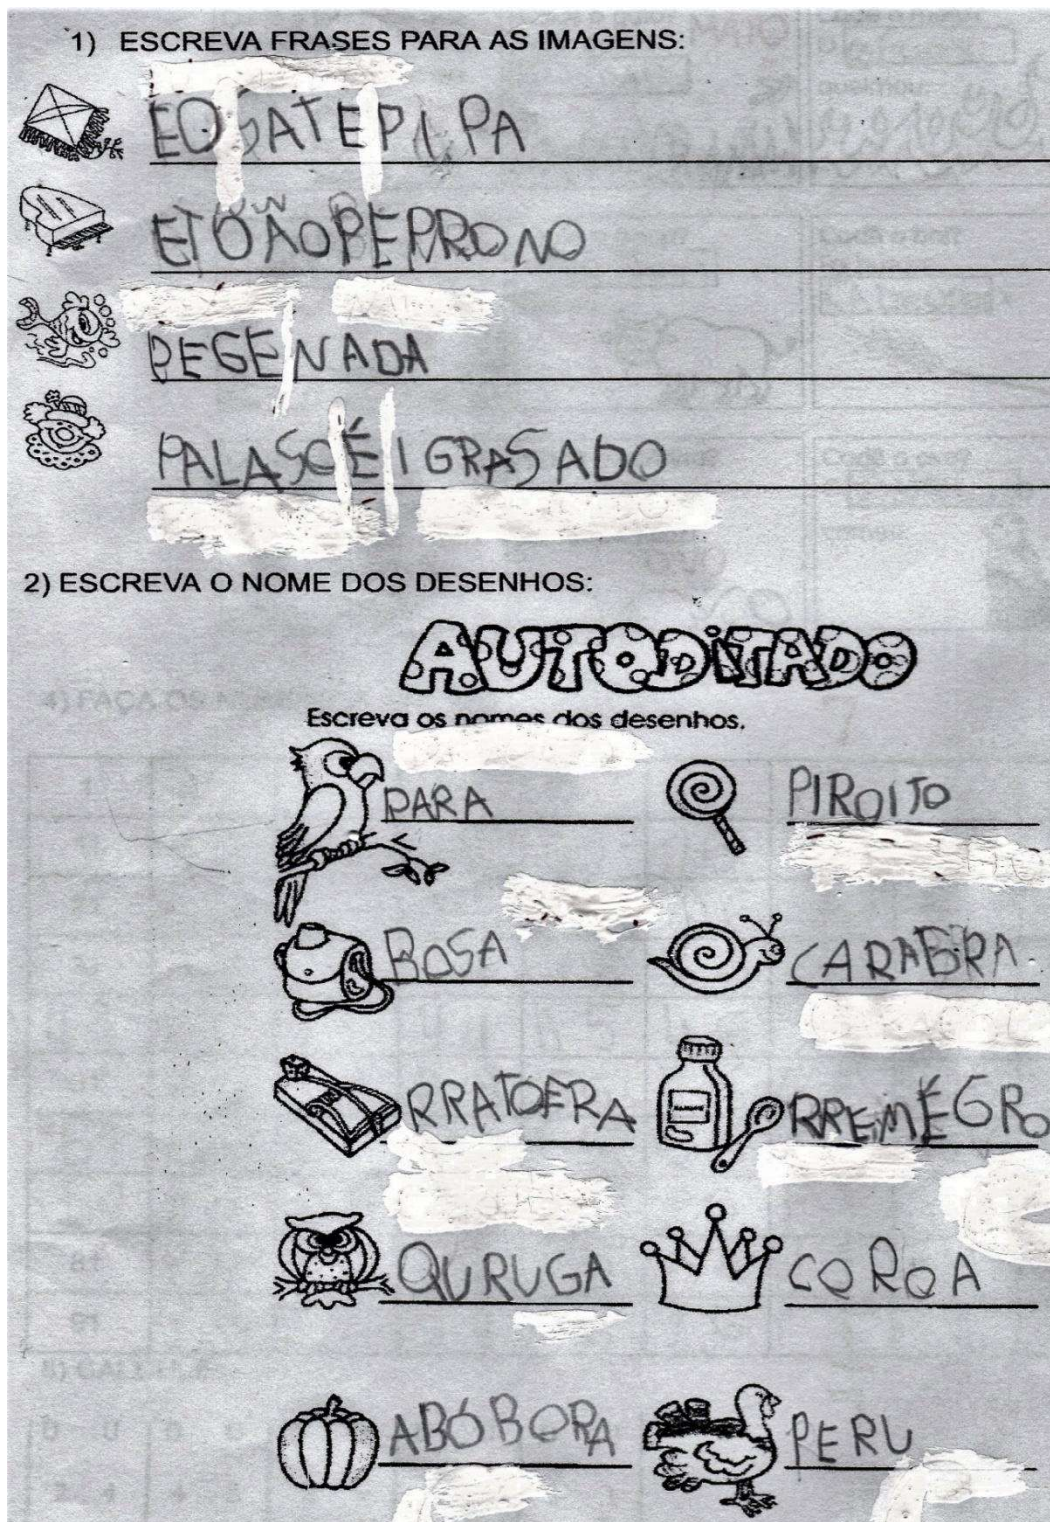 1) ESCREVA FRASES PARA AS IMAGENS:
EO GATE PIPA
ETOÃO PE PRONO
PEGE NADA
PALASO É IGRASADO
2) ESCREVA O NOME DOS DESENHOS:
AUTODITADO
Escreva os nomes dos desenhos.
PARA PIROITO
BOSA CARABRA
RRATOERA RREMÉGRO
QURUGA COROA
ABÓBORA PERU